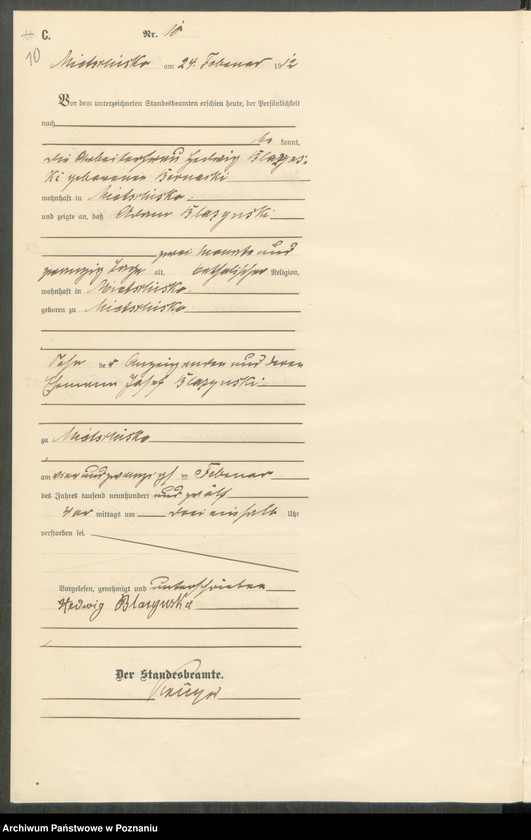 C.
Nr. 10
10
Mielschisko am 24. Februar 1912
Vor dem unterzeichneten Standesbeamten erschien heute, der Persönlichkeit
nach
be kannt,
die Arbeiterfrau Hedwig Blazyns-
ki geborenen Bernaski
wohnhaft in
und zeigte an, daß Adam Blazynski
zwei Monate und
zwanzig Tage alt, katholischer Religion,
wohnhaft in
geboren zu
Sohn der Anzeigenden und deren
Ehemann Josef Blazynski
zu
am vierundzwanzigsten Februar
des Jahres tausend neunhundert und zwölf
Vor mittags um drei einhalb Uhr
verstorben sei.
Vorgelesen, genehmigt und unterschrieben
Hedwig Blazynska
Der Standesbeamte.
Krüger
Archiwum Państwowe w Poznaniu